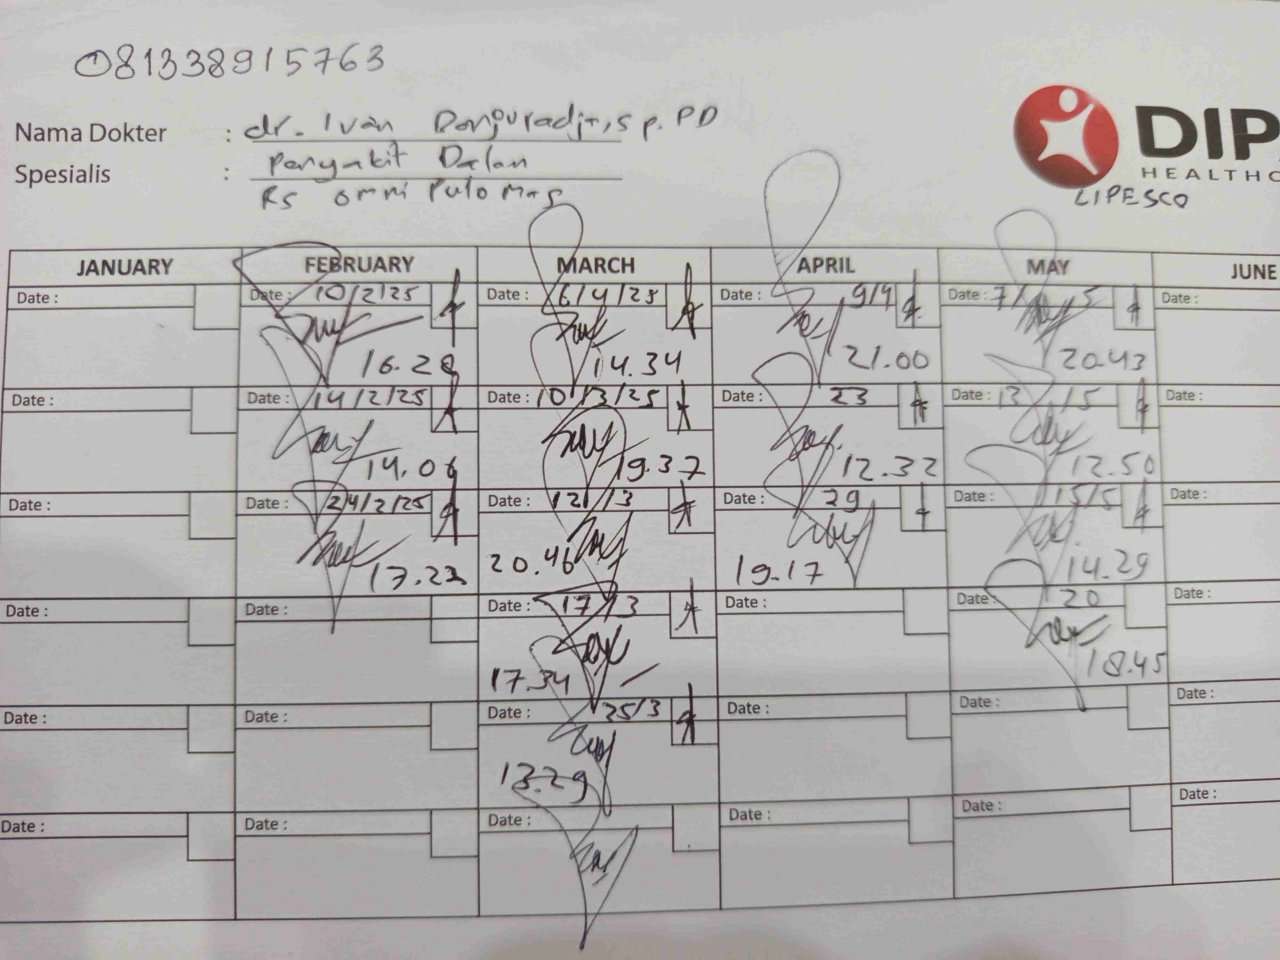 081338915763
Nama Dokter : dr. Ivan Danjuradja, sp. PD
Spesialis : Penyakit Dalam
Rs omni Pulo Mas
DIP
HEALTHC
LIPESCO
JANUARY FEBRUARY MARCH APRIL MAY JUNE
Date : Date : 10/2/25 Date : 6/4/25 Date : 9/4 Date : 7/ 5 Date :
16.28 14.34 21.00 20.43
Date : Date : 14/2/25 Date : 10/3/25 Date : 23 Date : 13/5 Date :
14.06 19.37 12.32 12.50
Date : Date : 24/2/25 Date : 12/3 Date : 29 Date : 15/5 Date :
17.23 20.46 19.17 14.29
Date : Date : Date : 17/3 Date : Date : 20 Date :
17.34 18.45
Date : Date : Date : 25/3 Date : Date : Date :
13.29
Date : Date : Date : Date : Date : Date :